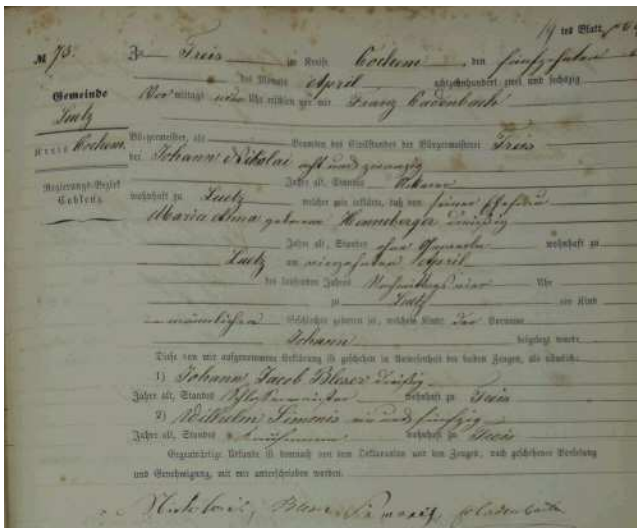 19 tes Blatt
№ 75.
Zu Treis im Kreise Cochem, den fünfzehnten
des Monats April achtzehnhundert zwei und sechszig
Vormittags Uhr erschien vor mir Franz Cadenbach
Gemeinde
Luetz
Kreis Cochem
Regierungs-Bezirk
Coblenz
Bürgermeister, als Beamten des Civilstandes der Bürgermeisterei Treis
der Johann Nikolai acht und zwanzig
Jahre alt, Standes Ackerer
wohnhaft zu Luetz welcher mir erklärte, daß von seiner Ehefrau
Maria Anna geborene Henneberger dreißig
Jahre alt, Standes ohne Gewerbe wohnhaft zu
Luetz am vierzehnten April
des laufenden Jahres Nachmittags vier Uhr
zu Luetz ein Kind
männlichen Geschlechts geboren ist, welchem Kinde der Vorname
Johann beigelegt wurde.
Diese von mir aufgenommene Erklärung ist geschehen in Anwesenheit der beiden Zeugen, als nämlich:
1) Johann Jacob Bleser dreißig
Jahre alt, Standes wohnhaft zu Treis
2) Wilhelm Simonis und fünfzig
Jahre alt, Standes wohnhaft zu Treis
Gegenwärtige Urkunde ist demnach von dem Deklaranten und den Zeugen, nach geschehener Vorlesung
und Genehmigung, mit mir unterschrieben worden.
Nikolai, Bleser Simonis, Cadenbach